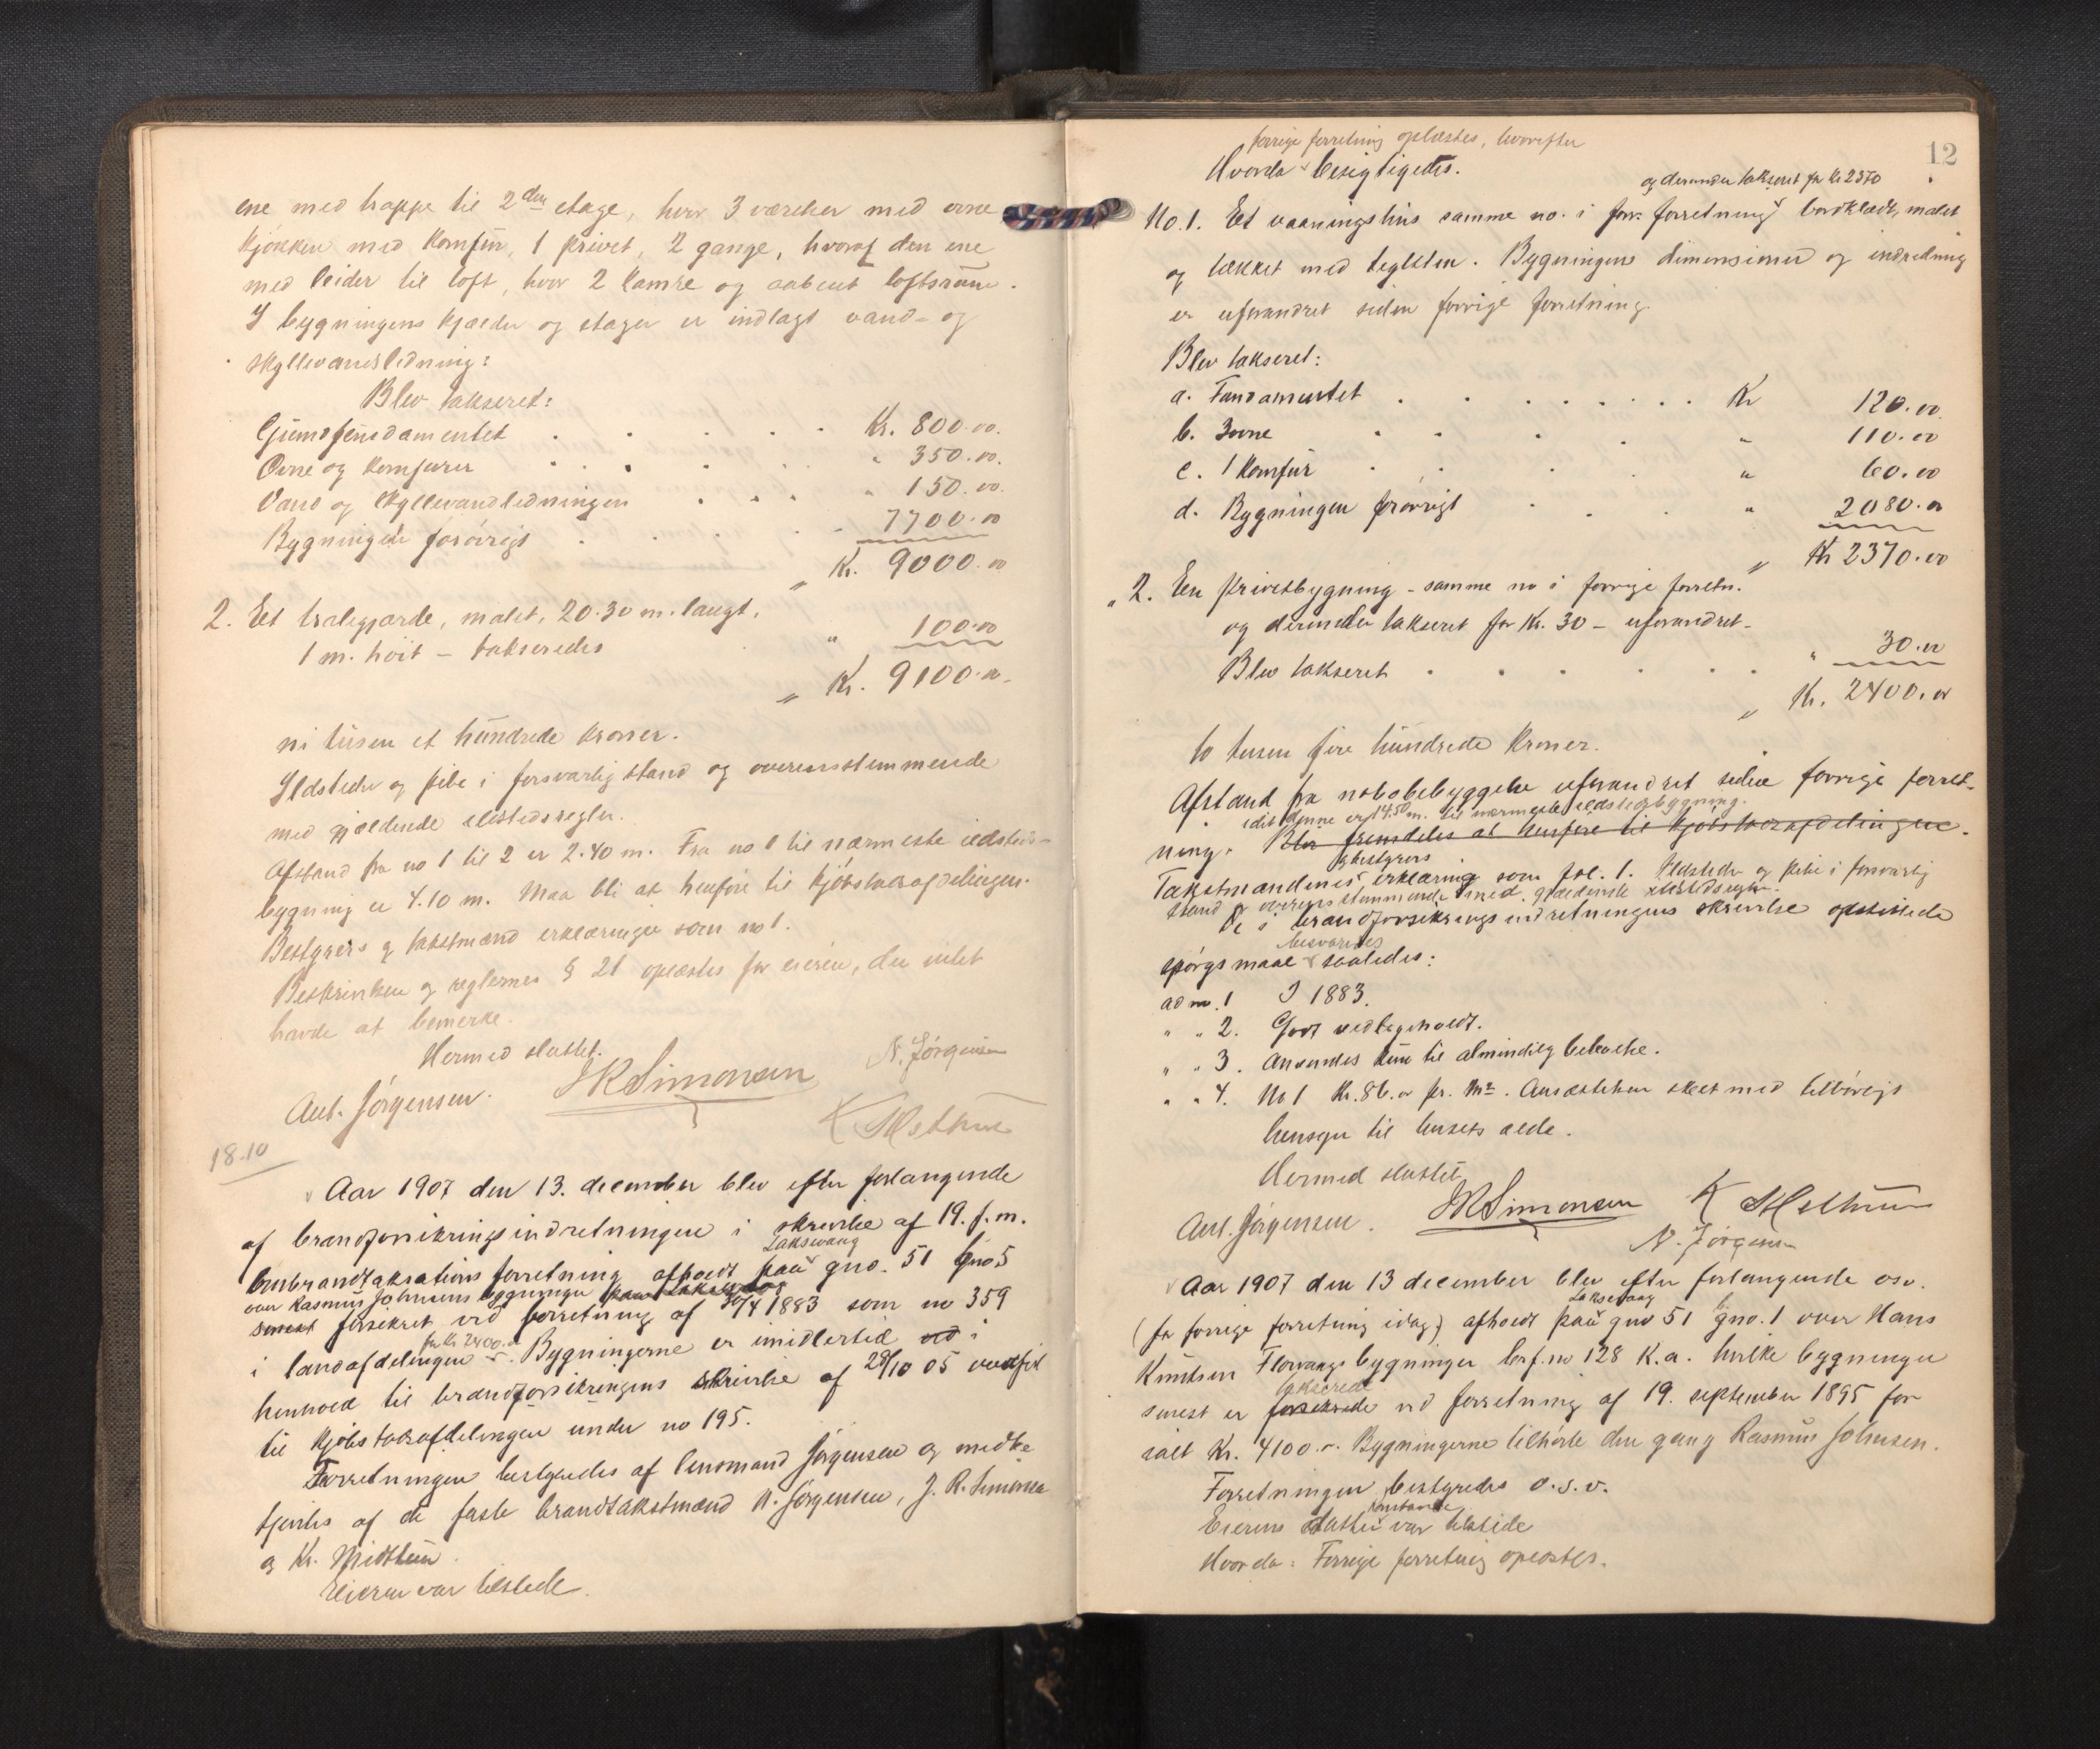 ene med trappe til 2den etage, hvor 3 værelser med ovne
kjøkken med komfur, 1 privet, 2 gange, hvoraf den ene
med leider til loft, hvor 2 kamre og aabent loftsrum.
I bygningens kjælder og etager er indlagt vand- og
skyllevandsledning:
Blev takseret:
Grundfundamentet . . . . . Kr. 800.00.
Ovne og komfurer . . . . . " 350.00.
Vand og skyllevandledningen . . . " 150.00.
Bygningen forøvrigt . . . . . " 7700.00
" Kr. 9000.00
2. Et stakitgjærde, malet, 20.30 m. langt,
1 m. høit - takseredes " 100.00
" Kr. 9100.00
ni tusen et hundrede kroner.
Ildsteder og pibe i forsvarlig stand og overensstemmende
med gjældende ildstedsregler.
Afstand fra no 1 til 2 er 2.40 m. Fra no 1 til nærmeste ildsteds-
bygning er 4.10 m. Maa bli at henføre til kjøbstadsafdelingen.
Bestyrers og takstmænd erklæringer som no 1.
Beskrivelsen og reglernes § 21 oplæstes for eieren, der intet
havde at bemerke.
Hermed sluttet.
Ant. Jørgensen. JRSimonsen N. Jørgensen
K Midthun
18.10
Aar 1907 den 13. december blev efter forlangende
af brandforsikringsindretningen i skrivelse af 19. f. m.
Laksevaag
ombrandtaksationsforretning afholdt paa gno. 51 bno 5
over Rasmus Johnsens bygninger paa Laksevaag
senest forsikret ved forretning af 30/4 1883 som no 359
for Kr. 2400.00
i landafdelingen. Bygningerne er imidlertid ved i
henhold til brandforsikringens skrivelse af 28/10 05 overført
til kjøbstadsafdelingen under no 195.
Forretningen bestyredes af lensmand Jørgensen og medbe
tjentes af de faste brandtakstmænd N. Jørgensen, J. R. Simonsen
og Kr. Midthun.
Eieren var tilstede.
12
forrige forretning oplæstes, hvorefter
Hvorda besigtigedes.
og derunder takseret for Kr 2370
No. 1. Et vaaningshus samme no. i forr. forretning bordklædt, malet
og tækket med teglsten. Bygningens dimensioner og indredning
er uforandret siden forrige forretning.
Blev takseret:
a. Fundamentet . . . . . . . . Kr 120.00
b. 3 ovne . . . . " 110.00
c. 1 komfur . . . " 60.00
d. Bygningen forøvrigt . . . " 2080.00
" Kr 2370.00
" 2. En privetbygning - samme no i forrige forretn.
og derunder takseret for Kr. 30 - uforandret -
Blev takseret . . . . . " 30.00
" Kr. 2400.00
to tusen fire hundrede kroner.
Afstand fra nabobebyggelse uforandret siden forrige forret-
idet denne er 14.50 m. til nærmeste ildstedsbygning.
ning. Blir fremdeles at henføre til kjøbstadsafdelingen.
& bestyrers
Takstmændenes erklæring som fol. 1. Ildsteder og pibe i forsvarlig
stand og overensstemmende med gjældende ildstedsregler.
De i brandforsikringsindretningens skrivelse opstillede
besvaredes
spørgsmaal saaledes:
ad no. 1 I 1883.
" " 2. Godt vedligeholdt.
" " 3. Anvendes kun til almindelig beboelse.
" " 4. No 1 Kr. 86.00 pr. m2. Ansættelsen skeet med tilbørlig
hensyn til husets ælde.
Hermed sluttet
Ant. Jørgensen. JRSimonsen K Midthun
N. Jørgensen
Aar 1907 den 13 december blev efter forlangende osv.
Laksevaag
(se forrige forretning idag) afholdt paa gno 51 bno. 1 over Hans
Knutsen Florvaags bygninger brf. no 128 K.a. hvilke bygninger
takserede
senest er forsikrede ved forretning af 19. september 1895 for
ialt Kr. 4100.00. Bygningerne tilhørte den gang Rasmus Johnsen.
Forretningen bestyredes o. s. v.
Eierens var tilstede
Hvorda: Forrige forretning oplæstes.